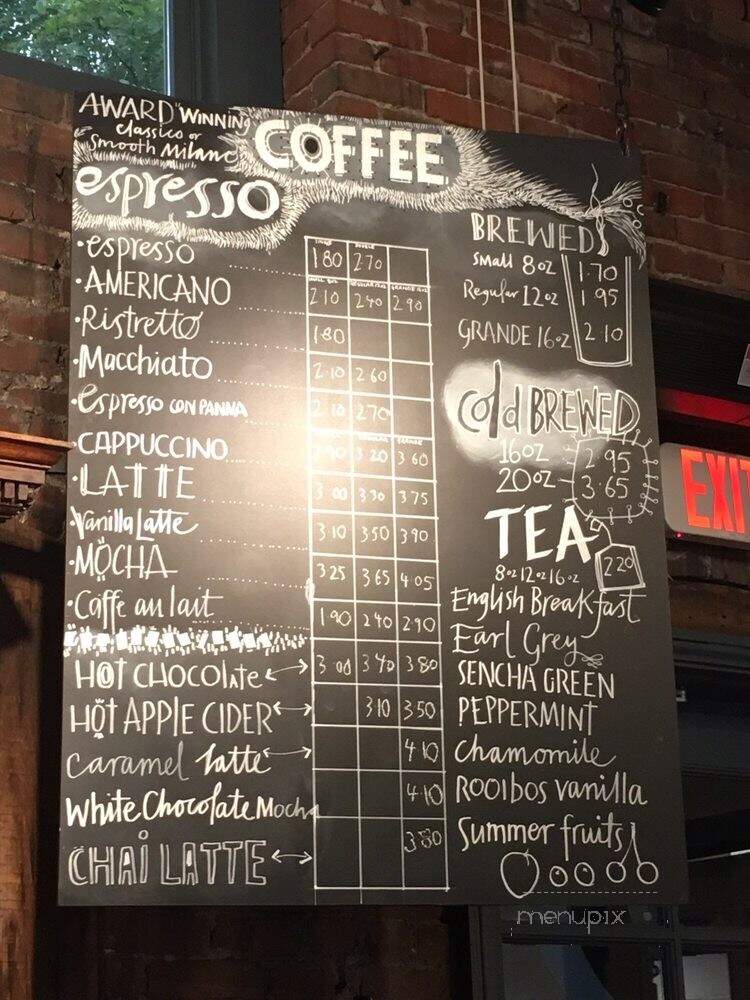 AWARD WINNING
classico or
Smooth Milano
COFFEE
espresso
•espresso 1 80 2.70
•AMERICANO 2 10 2 40 2 90
•Ristretto 1 80
•Macchiato 2.10 2 60
•Espresso CON PANNA 2 10 2.70
•CAPPUCCINO 3 20 3 60
•LATTE 3 00 3 30 3 75
•Vanilla Latte 3 10 3 50 3 90
•MOCHA 3 25 3 65 4 05
•Caffe au lait 1 90 2 40 2 90
HOT CHOCOLATE 3 00 3 40 3 80
HOT APPLE CIDER 3 10 3 50
Caramel latte 4 10
White Chocolate Mocha 4 10
CHAI LATTE 3 80
BREWED
Small 8oz 1.70
Regular 12oz 1 95
GRANDE 16oz 2 10
Cold BREWED
16oz 2 95
20oz 3.65
TEA
8oz 12oz 16oz 2 20
English Breakfast
Earl Grey
SENCHA GREEN
PEPPERMINT
Chamomile
ROOIBOS vanilla
Summer fruits
EXIT
menupix